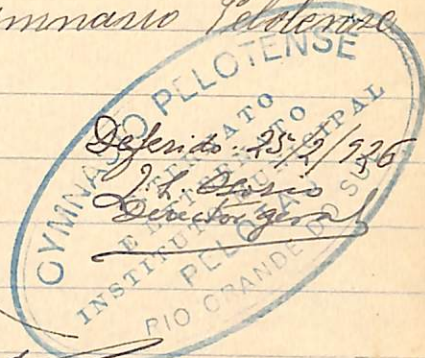 Gymnasio Pelotense
GYMNASIO PELOTENSE
INTERNATO
E EXTERNATO
INSTITUTO MUNICIPAL
PELOTAS
RIO GRANDE DO SUL
Deferido. 25/2/926
J. L. Osorio
Director geral